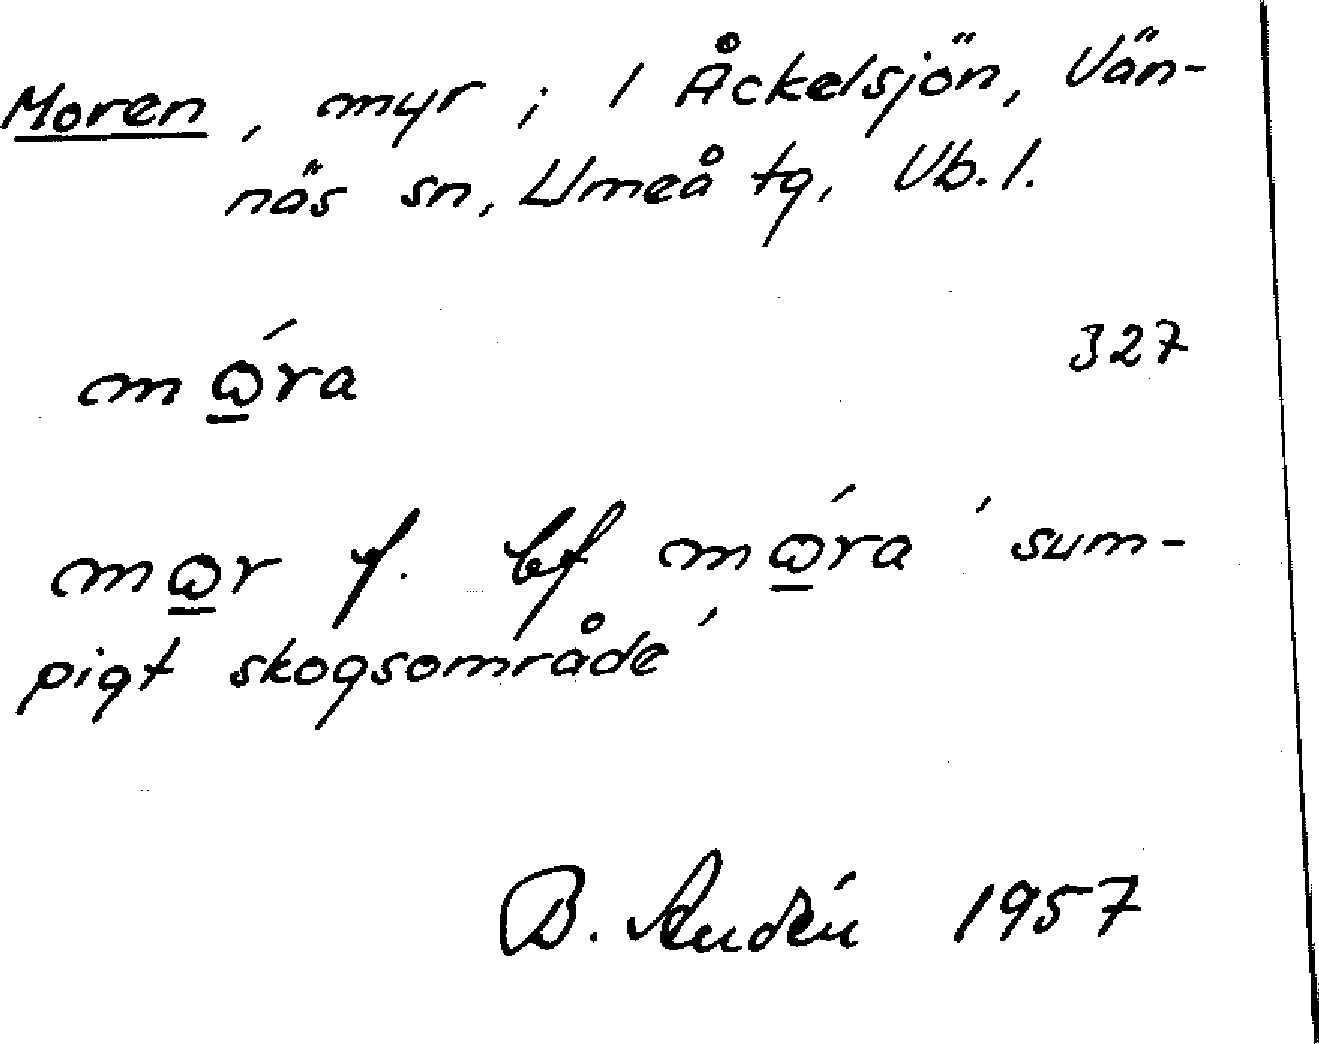 Moren, myr; 1 Åckelsjön, Vän-
näs sn, Umeå tg, Vb. l.
mώ̲ra 327
mω̲r f. bf mώ̲ra ' sum-
pigt skogsområde'
B. Audén 1957